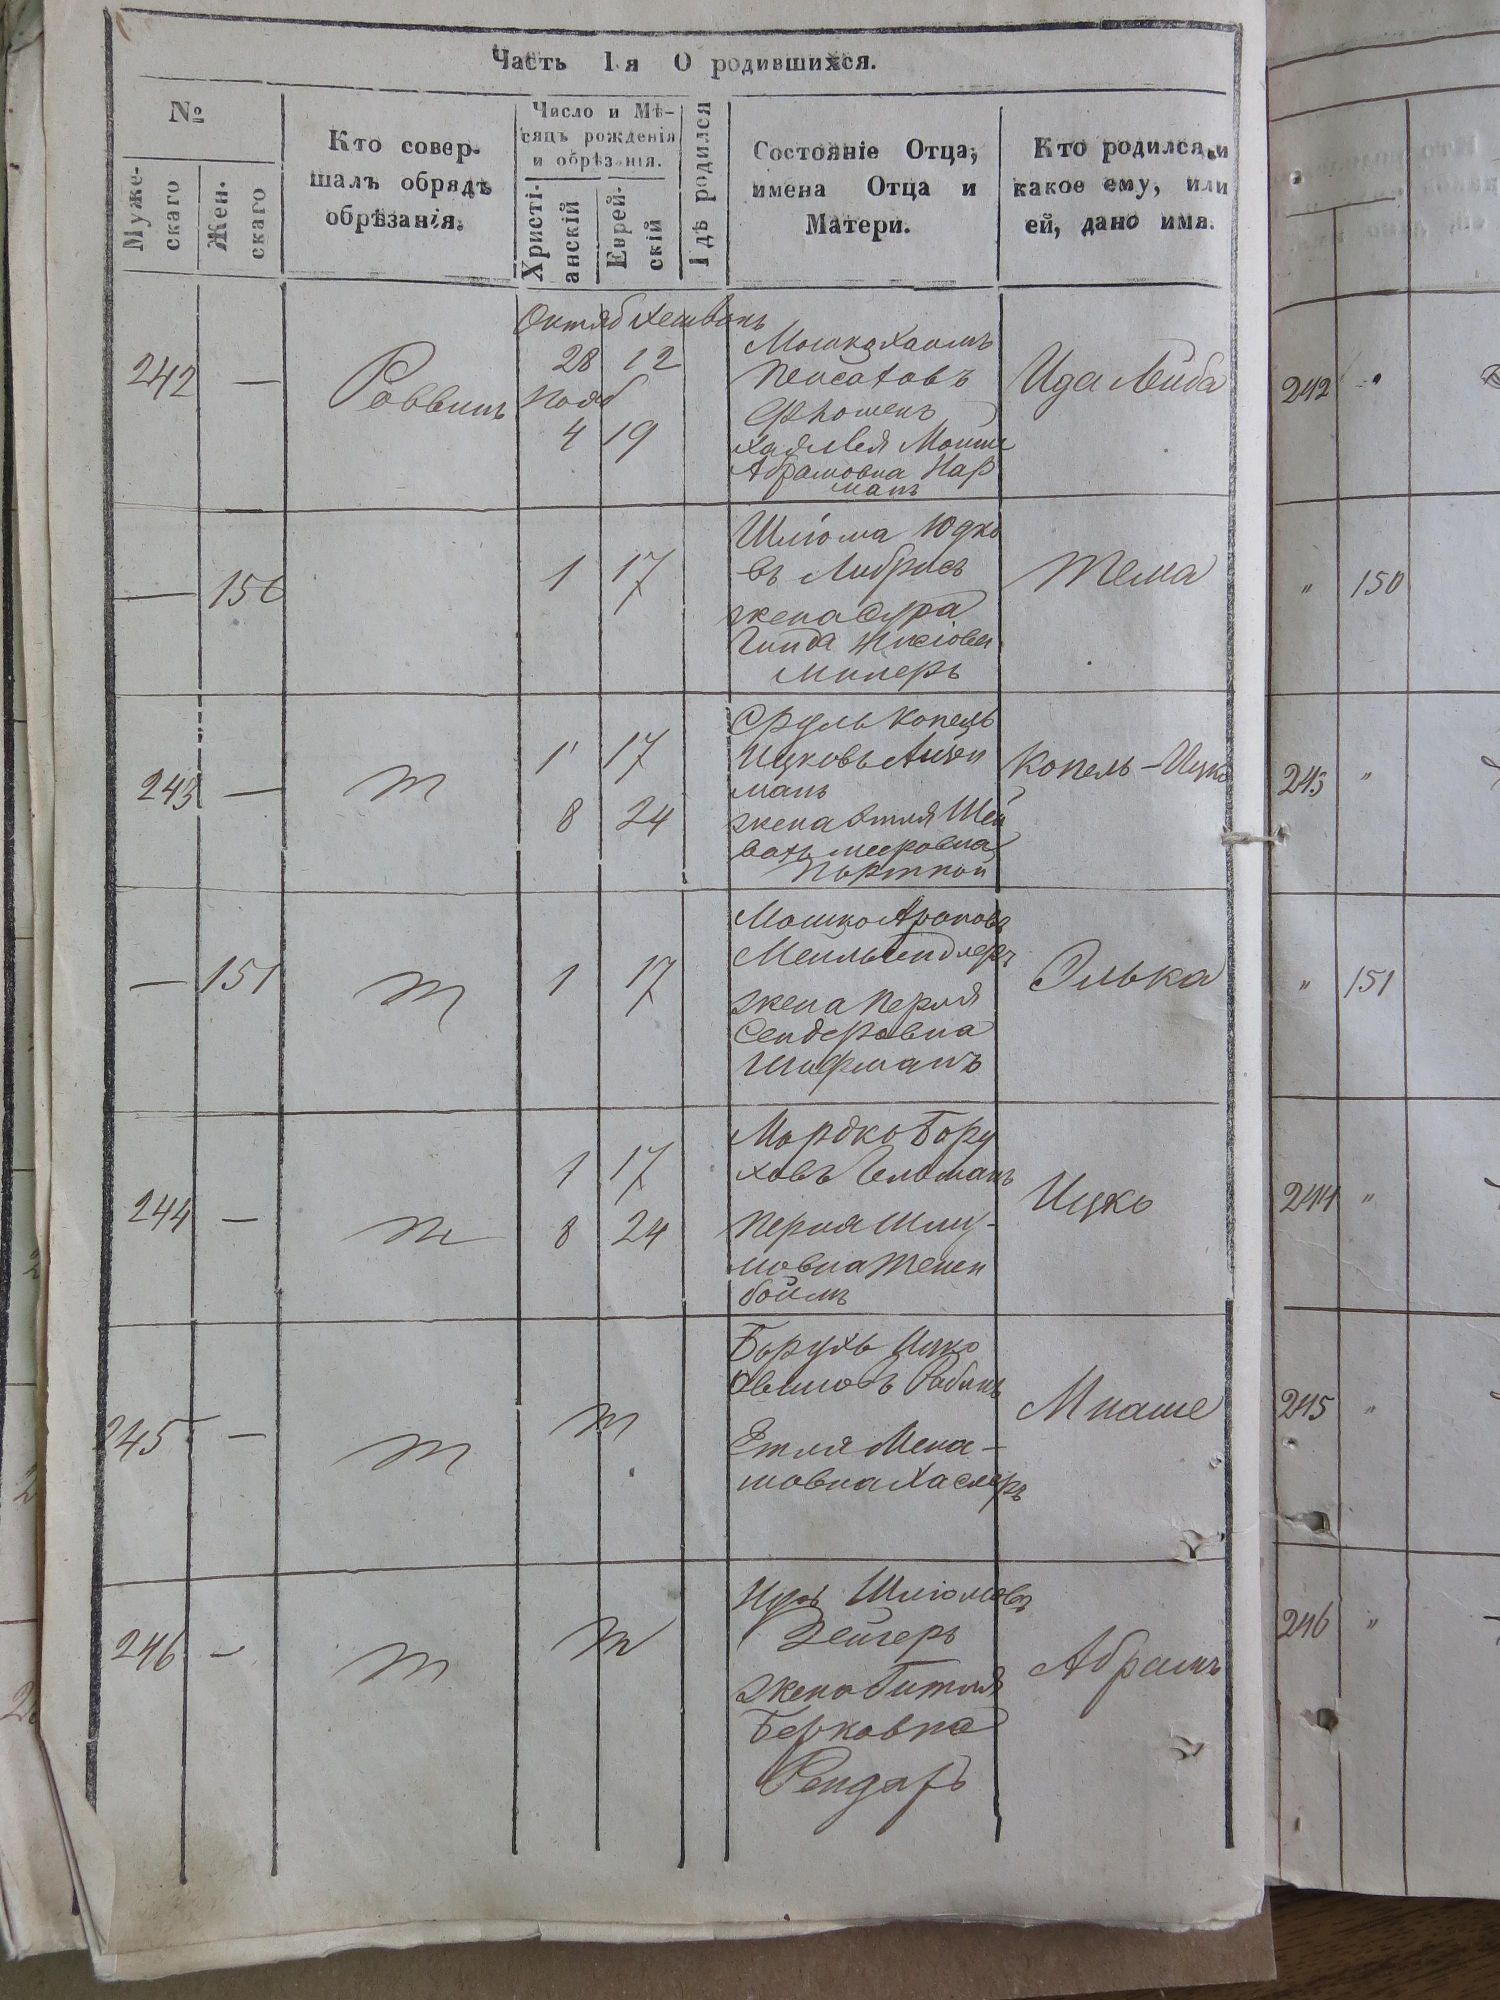 Часть 1-я О родившихся.
№
Муже-
скаго
Жен-
скаго
Кто совер-
шалъ обрядъ
обрѣзанія.
Число и Мѣ-
сяцъ рожденія
и обрѣзанія.
Христі-
анскій
Еврей-
скій
Гдѣ родился
Состояніе Отца,
имена Отца и
Матери.
Кто родился, и
какое ему, или
ей, дано имя.
Октяб Хешванъ
242 —
Раввинъ
28 12
Нояб
4 19
Мошко Хаимъ
Пейсаховъ
Абрамовна
манъ
Ида Лейба
— 150
1 17
Шлiома Юдко
въ Либрисъ
жена Сура
Гинда
Милеръ
Тема
243 —
Т
1 17
8 24
Сруль Копель
Ицковъ
манъ
жена Етля
вахъ Мееровна
Портной
Копель-Ицко
— 151
Т
1 17
Мошко Ароновъ
жена Перля
Сендеровна
Шифманъ
Элька
244 —
Т
1 17
8 24
Мордко Бору
ховъ
Перля Шлiу-
мовна Тенен
боймъ
Ицко
245 —
Т
Т
Борухъ Ицко
Рабинъ
Етля Мена-
шовна
Мнаше
246 —
Т
Т
Шлiомовъ
Зейгеръ
жена Гитля
Берковна
Рендаръ
Абрамъ
242 "
" 150
243 "
" 151
244 "
245 "
246 "